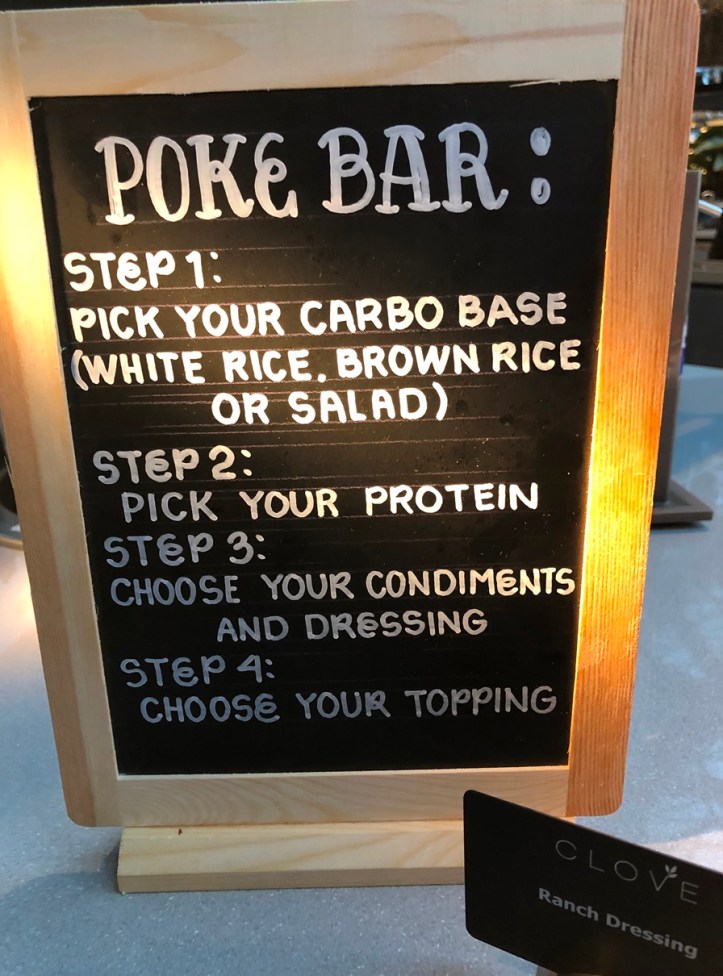 POKE BAR:
STEP 1:
PICK YOUR CARBO BASE
(WHITE RICE, BROWN RICE
OR SALAD)
STEP 2:
PICK YOUR PROTEIN
STEP 3:
CHOOSE YOUR CONDIMENTS
AND DRESSING
STEP 4:
CHOOSE YOUR TOPPING
CLOVE
Ranch Dressing